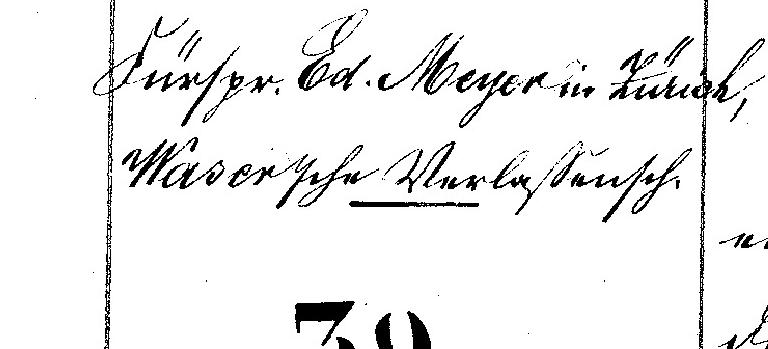 Fürspr. Ed. Meyer in Zürich,
Waser'sche Verlassensch.